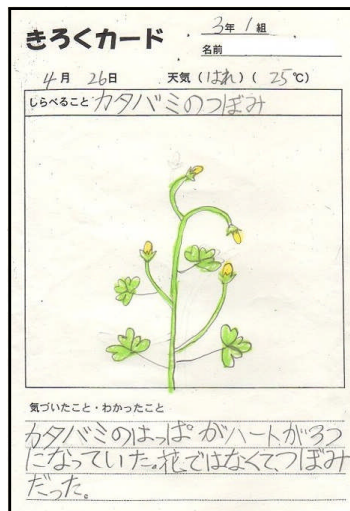 きろくカード
3年 1組
名前
4月 26日 天気(はれ)(25℃)
しらべること カタバミのつぼみ
気づいたこと・わかったこと
カタバミのはっぱがハートが3つ
になっていた。花ではなくてつぼみ
だった。